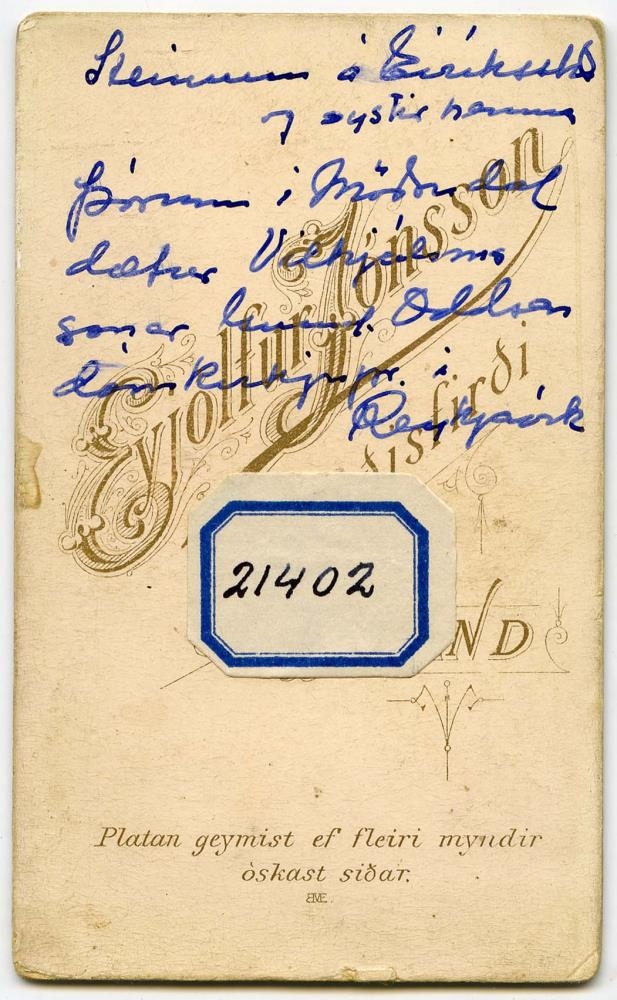 Steinunn á Eiríksst.
og systir hennar
Þórunn í Möðrudal
dætur Vilhjálms
sonar Guðm. Oddsen
dómkirkjupr. í
Reykjavík
Eyjólfur Jónsson
ðisfirði
21402
ND
Platan geymist ef fleiri myndir
óskast siðar.